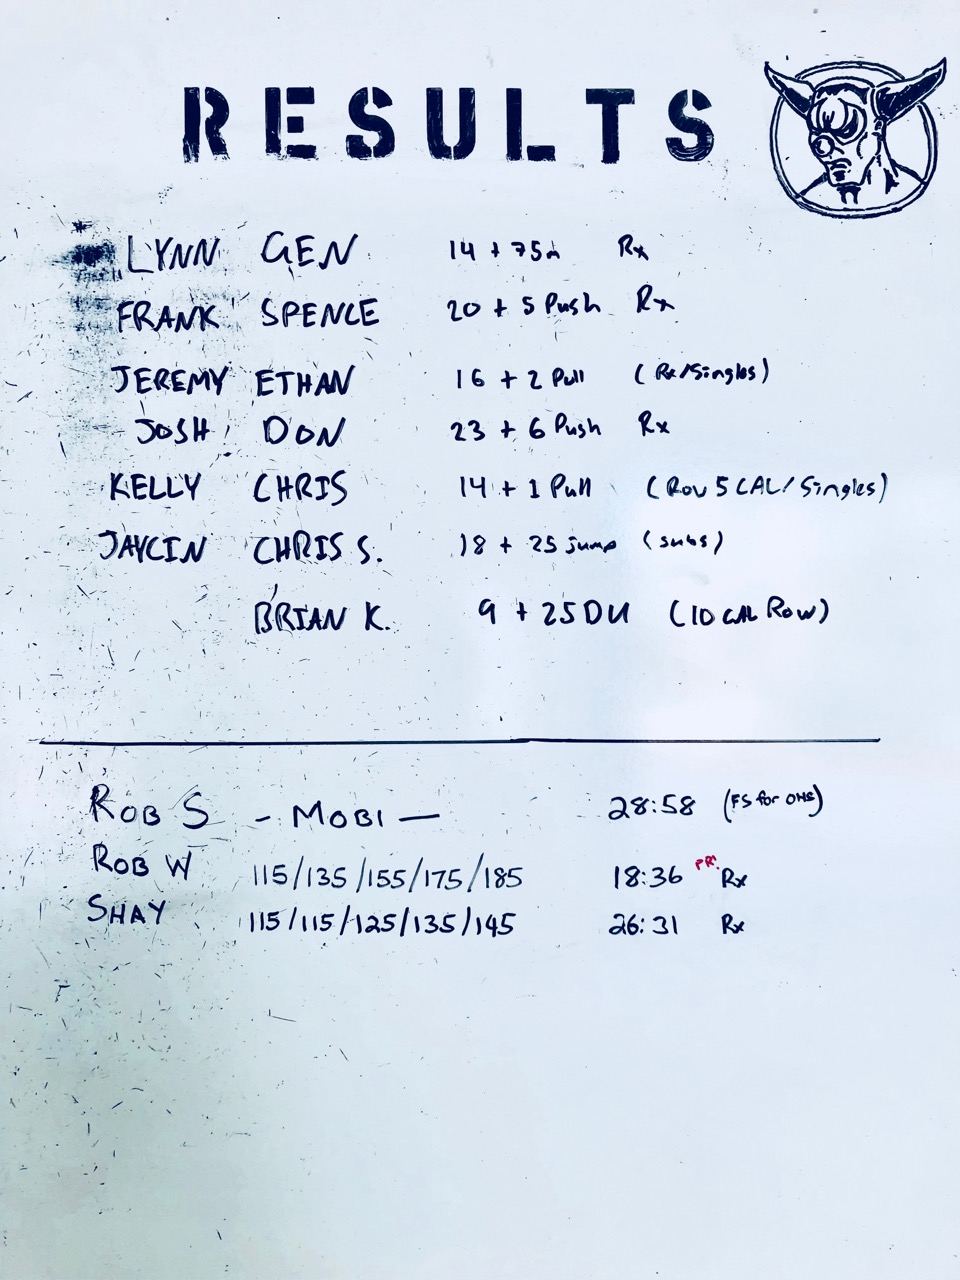 RESULTS
LYNN GEN 14 + 75m Rx
FRANK SPENCE 20 + 5 Push Rx
JEREMY ETHAN 16 + 2 Pull (Rx/Singles)
JOSH DON 23 + 6 Push Rx
KELLY CHRIS 14 + 1 Pull (Row 5 CAL/Singles)
JAYCIN CHRIS S. 18 + 25 jump (subs)
BRIAN K. 9 + 25 DU (10 CAL ROW)
ROB S - MOBI — 28:58 (FS for OHS)
ROB W 115/135/155/175/185 18:36 PR! Rx
SHAY 115/115/125/135/145 26:31 Rx